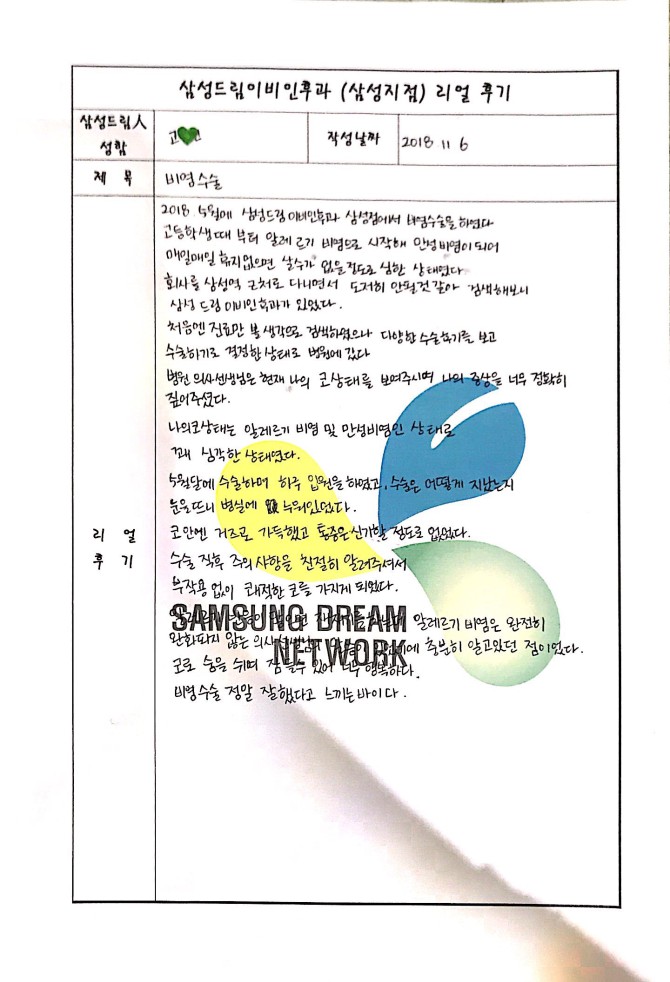 삼성드림이비인후과 (삼성지점) 리얼 후기
삼성드림人
성함
고
작성날짜
2018 11 6
제 목
비염수술
2018 5월에 삼성드림이비인후과 삼성점에서 비염수술을 하였다
고등학생때 부터 알레르기 비염으로 시작해 만성비염이 되어
매일매일 휴지없으면 살수가 없을정도로 심한 상태였다
회사를 삼성역 근처로 다니면서 도저히 안될것 같아 검색해보니
삼성 드림 이비인후과가 있었다.
처음엔 진료만 볼 생각으로 검색하였으나 다양한 수술후기를 보고
수술하기로 결정한 상태로 병원에 갔다
병원 의사선생님은 현재 나의 코상태를 보여주시며 나의 증상을 너무 정확히
짚어주셨다.
나의코상태는 알레르기 비염 및 만성비염인 상태로
꽤 심각한 상태였다.
5월달에 수술하며 하루 입원을 하였고, 수술은 어떻게 지났는지
눈을 뜨니 병실에 누워있었다.
리 얼
후 기
코안엔 거즈로 가득했고 통증은 신기할 정도로 없었다.
수술 직후 주의사항을 친절히 알려주셔서
부작용 없이 쾌적한 코를 가지게 되었다.
알레르기 비염은 완전히
완화되지 않는 의사선생님 충분히 알고있던 점이었다.
코로 숨을 쉬며 잠 잘수 있어 너무 행복하다.
비염수술 정말 잘했다고 느끼는바이다.
SAMSUNG DREAM
NETWORK